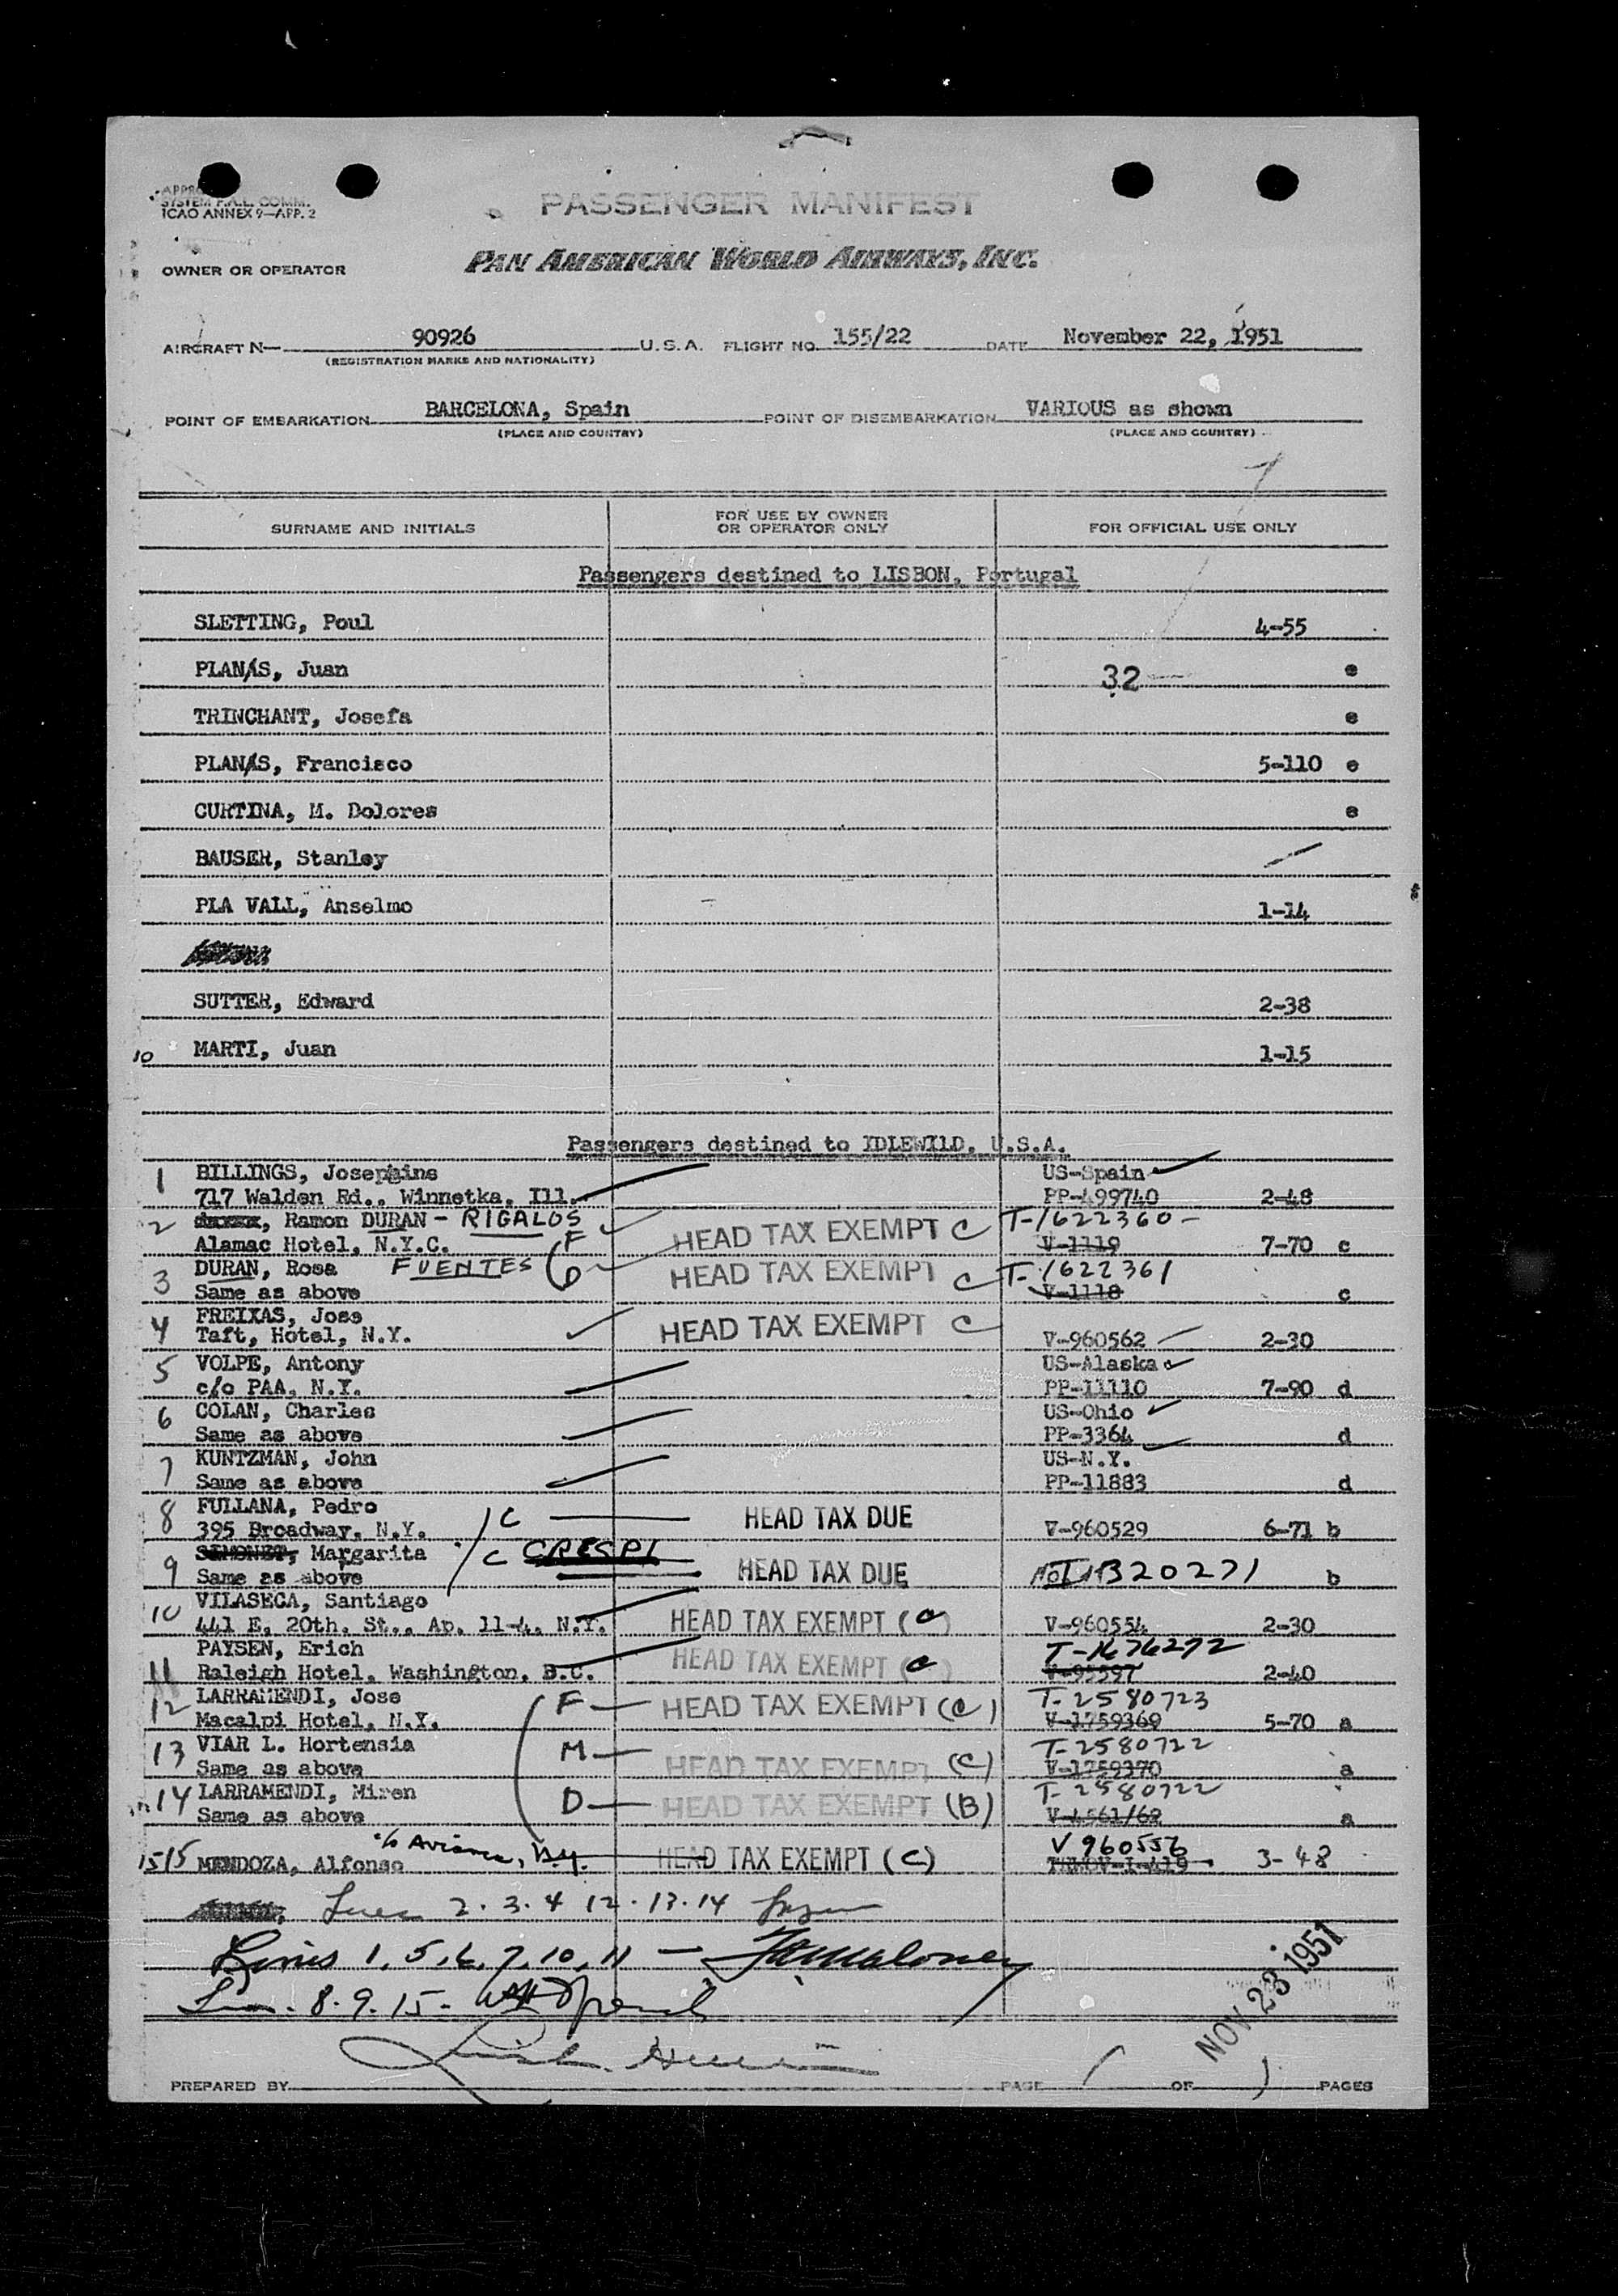 SYSTEM P.A.L. COMM.
ICAO ANNEX 9—APP. 2
PASSENGER MANIFEST
OWNER OR OPERATOR PAN AMERICAN WORLD AIRWAYS, INC.
AIRCRAFT N— 90926 U.S.A. FLIGHT NO. 155/22 DATE November 22, 1951
(REGISTRATION MARKS AND NATIONALITY)
POINT OF EMBARKATION BARCELONA, Spain POINT OF DISEMBARKATION VARIOUS as shown
(PLACE AND COUNTRY) (PLACE AND COUNTRY)
SURNAME AND INITIALS FOR USE BY OWNER OR OPERATOR ONLY FOR OFFICIAL USE ONLY
Passengers destined to LISBON, Portugal
SLETTING, Poul 4-55
PLANAS, Juan 32 e
TRINCHANT, Josefa e
PLANAS, Francisco 5-110 e
CURTINA, M. Dolores e
BAUSER, Stanley
PLA VALL, Anselmo 1-14
SUTTER, Edward 2-38
10 MARTI, Juan 1-15
Passengers destined to IDLEWILD, U.S.A.
1 BILLINGS, Josephine US-Spain
717 Walden Rd., Winnetka, Ill. PP-499740 2-48
2 Ramon DURAN - RIGALOS HEAD TAX EXEMPT C T-1622360-
Alamac Hotel, N.Y.C. F V-1119 7-70 c
3 DURAN, Rosa FUENTES HEAD TAX EXEMPT C T-1622361
Same as above V-1118 c
4 FREIXAS, Jose HEAD TAX EXEMPT C
Taft, Hotel, N.Y. V-960562 2-30
5 VOLPE, Antony US-Alaska
c/o PAA, N.Y. PP-11110 7-90 d
6 COLAN, Charles US-Ohio
Same as above PP-3364 d
7 KUNTZMAN, John US-N.Y.
Same as above PP-11883 d
8 FULLANA, Pedro C HEAD TAX DUE
395 Broadway, N.Y. V-960529 6-71 b
9 SIMONET, Margarita C CRESPI HEAD TAX DUE
Same as above 1320271 b
10 VILASECA, Santiago HEAD TAX EXEMPT (C)
441 E. 20th. St., Ap. 11-4, N.Y. V-960554 2-30
11 PAYSEN, Erich HEAD TAX EXEMPT (C) T-1676272
Raleigh Hotel, Washington, D.C. V-95597 2-40
12 LARRAMENDI, Jose F HEAD TAX EXEMPT (C) T-2580723
Macalpi Hotel, N.Y. V-1759369 5-70 a
13 VIAR L. Hortensia M HEAD TAX EXEMPT (C) T-2580722
Same as above V-1759370 a
14 LARRAMENDI, Miren D HEAD TAX EXEMPT (B) T-2580722
Same as above V-4561/62 a
c/o Avianca, N.Y.
15 15 MENDOZA, Alfonso HEAD TAX EXEMPT (C) V 960556 3-48
2.3.4 12.13.14
Lines 1, 5, 6, 7, 10, 11 — Maloney
8.9.15-
NOV 23 1951
PREPARED BY PAGE 1 OF 1 PAGES